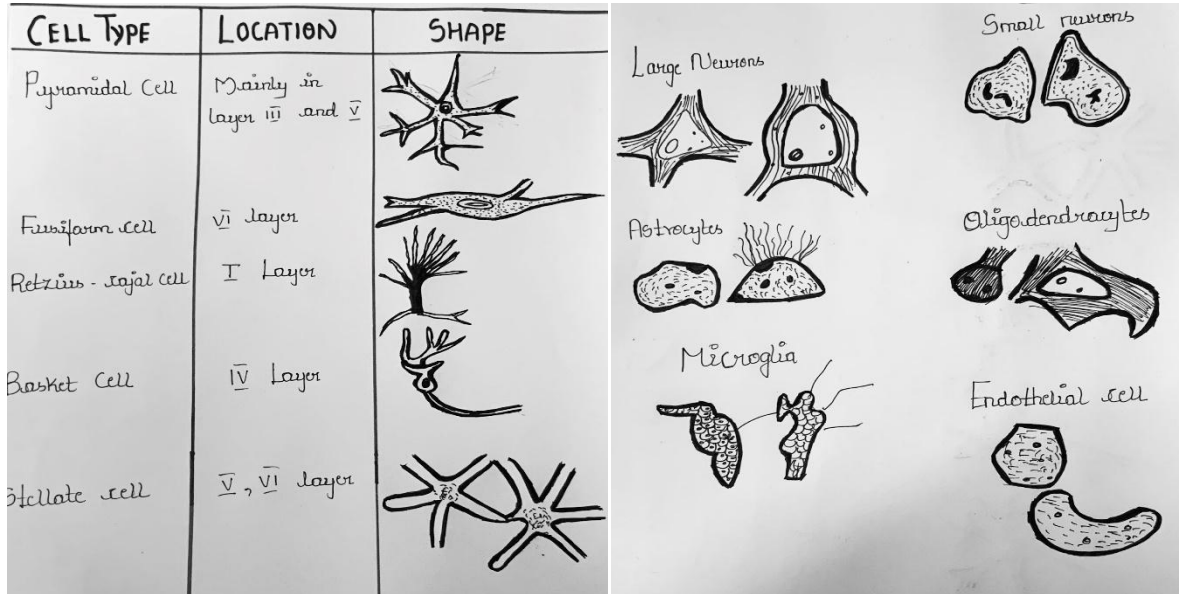 CELL TYPE LOCATION SHAPE
Pyramidal Cell Mainly in
layer III and V
Fusiform cell VI layer
Retzius-cajal cell I Layer
Basket Cell IV Layer
Stellate cell V, VI layer
Small neurons
Large Neurons
Astrocytes
Oligodendrocytes
Microglia
Endothelial cell